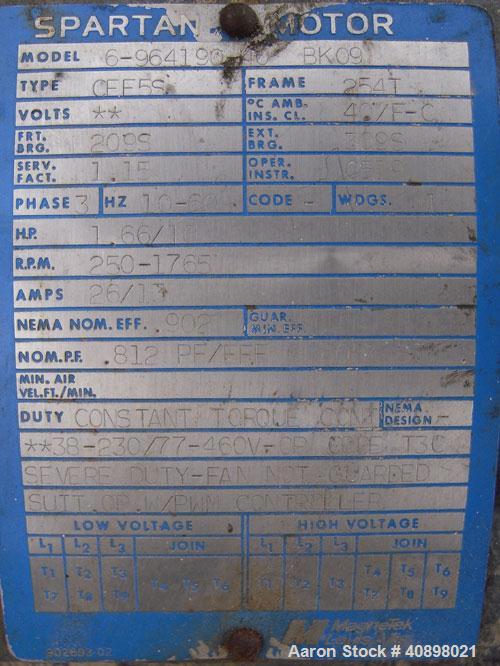 SPARTAN MOTOR
MODEL 6-964190- BK09
TYPE CEE5S FRAME 254T
VOLTS ** °C AMB. INS. CL. 40/F-C
FRT. BRG. 209S EXT. BRG. 309S
SERV. FACT. 1.15 OPER. INSTR.
PHASE 3 HZ 10-60 CODE - WDGS. 1
H.P. 1.66/10
R.P.M. 250-1765
AMPS 26/13
NEMA NOM. EFF. .902 GUAR. MIN. EFF.
NOM. P.F. .812 PF/EFF
MIN. AIR VEL. FT./MIN.
DUTY CONSTANT TORQUE CONT NEMA DESIGN -
**38-230/77-460V-OP CODE T3C
SEVERE DUTY-FAN NOT GUARDED
SUIT OP W/PWM CONTROLLER
LOW VOLTAGE HIGH VOLTAGE
L1 L2 L3 JOIN L1 L2 L3 JOIN
T1 T2 T3 T4 T5 T6
T7 T8 T9 T4 T5 T6 T1 T2 T3 T7 T8 T9
MagneTek
Louis Allis
902693-02
Aaron Stock # 40898021